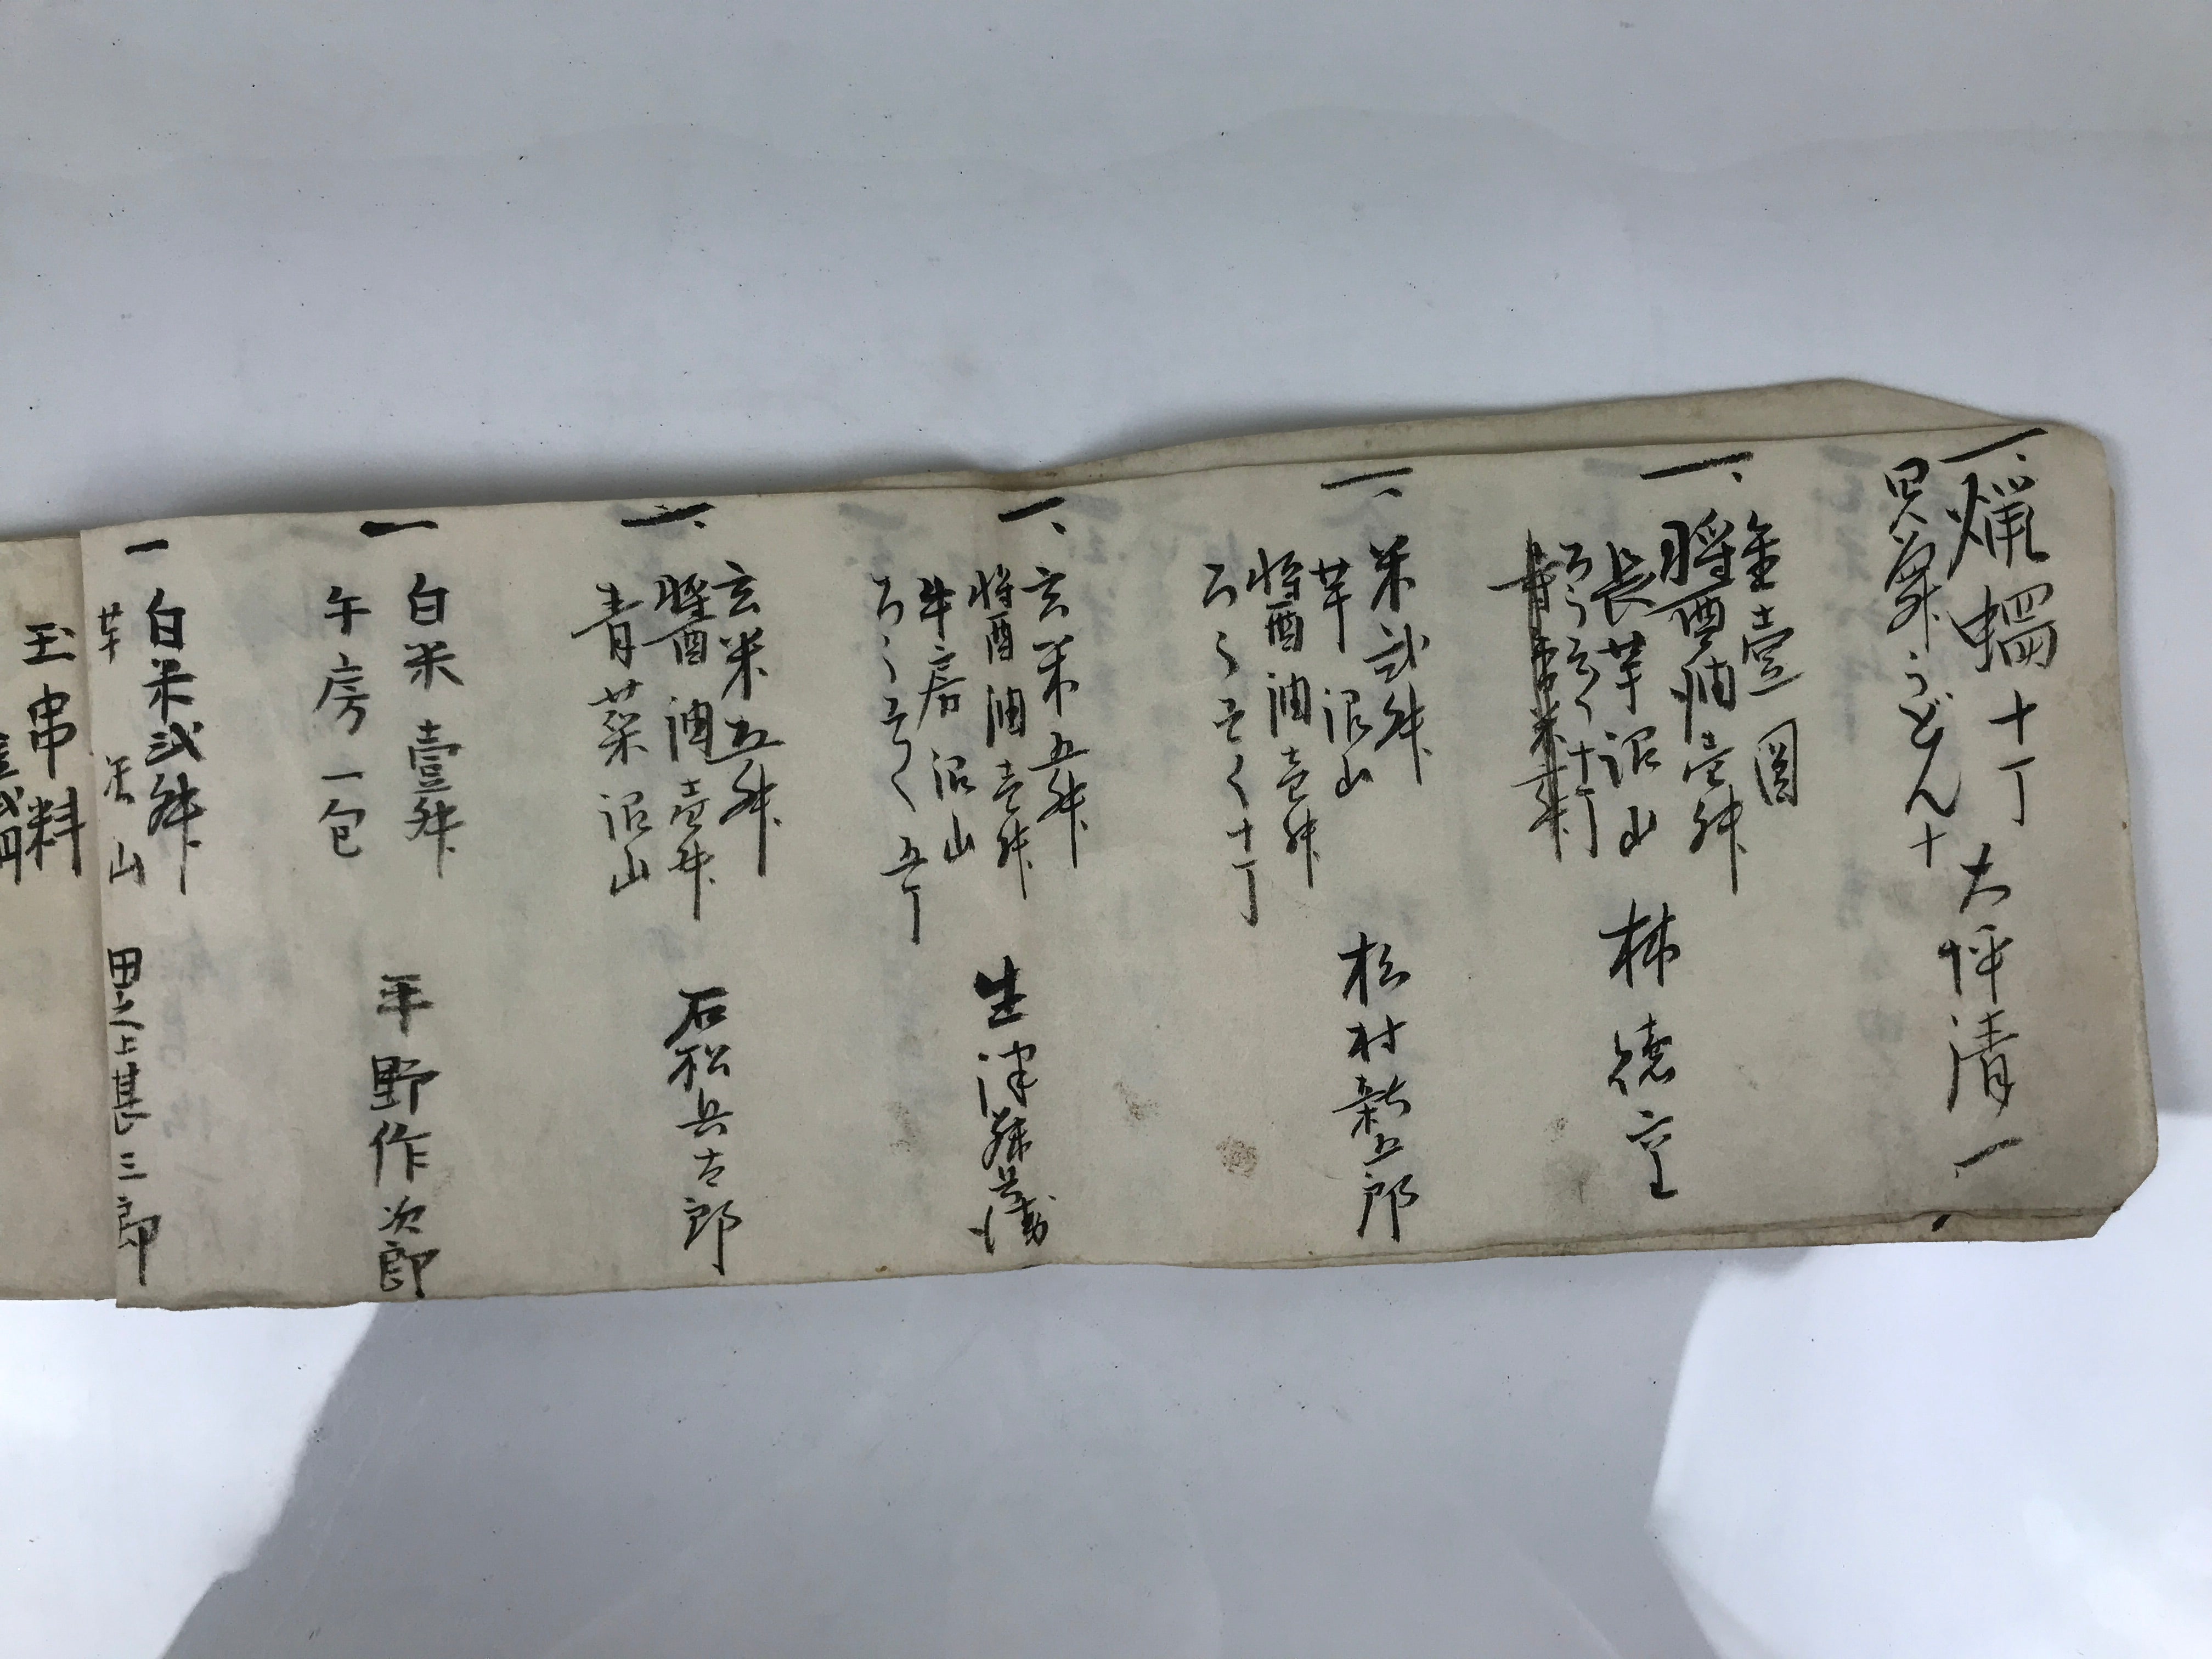 一、爉蠋十丁 大坪清一
うどん十
一、金壹圓
醬油壹舛
長芋沢山
ろうそく十丁
林徳
一、米弐舛
芋沢山
醬油壱舛
ろうそく十丁
松村新五郎
一、玄米五舛
醬油壱舛
牛房沢山
ろうそく五丁
生津
一、玄米五舛
醬油壹舛
青菜沢山
石松兵吉郎
一 白米壹舛
午房一包
平野作次郎
一 白米弐舛
芋沢山
田之上甚三郎
玉串料